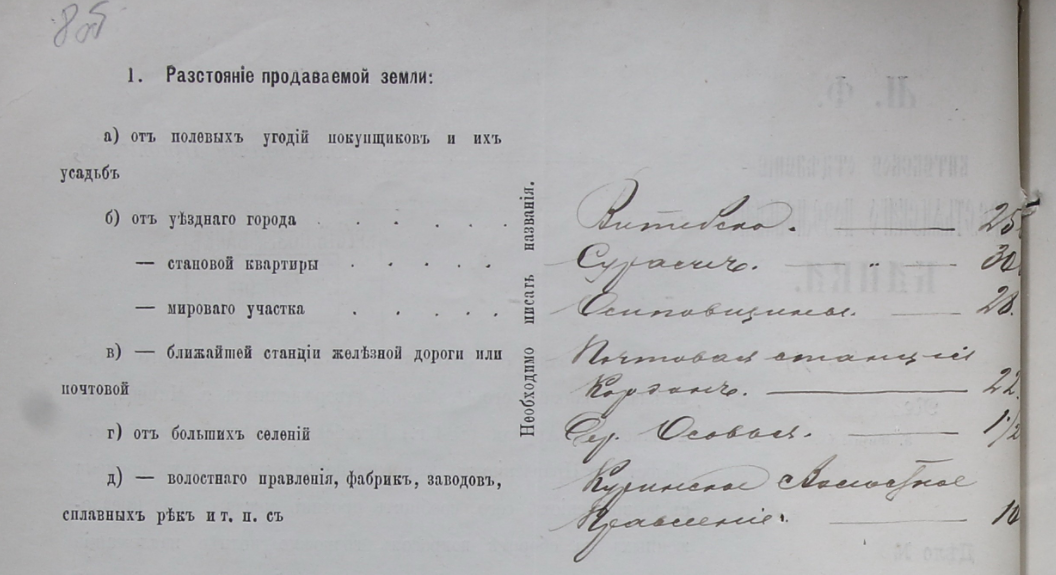 85
1. Разстояніе продаваемой земли:
а) отъ полевыхъ угодій покупщиковъ и ихъ
усадьбъ
б) отъ уѣзднаго города . . . . . Витебска. — 25
— становой квартиры . . . . Суражъ. — „ — 30
— мироваго участка . . . . Осиповщины. — 28.
в) — ближайшей станціи желѣзной дороги или Почтовая станція
почтовой — 22
г) отъ большихъ селеній Дер. Осовая. — 1/2
д) — волостнаго правленія, фабрикъ, заводовъ, Куринское Волостное
сплавныхъ рѣкъ и т. п. съ Правленіе. — 10
Необходимо писать названія.